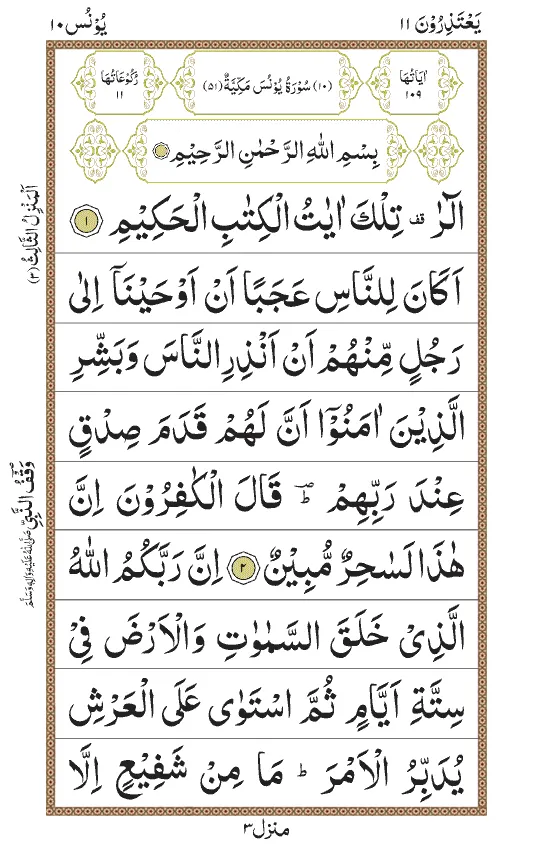 يَعْتَذِرُوْنَ ۱۱
يُوْنُس ۱۰
اٰيَاتُهَا ۱۰۹
(۱۰) سُوْرَةُ يُوْنُسَ مَكِّيَّةٌ (۵۱)
رُكُوْعَاتُهَا ۱۱
بِسْمِ اللهِ الرَّحْمٰنِ الرَّحِيْمِ
الٓرٰ ۫ تِلْكَ اٰيٰتُ الْكِتٰبِ الْحَكِيْمِ ۱
اَكَانَ لِلنَّاسِ عَجَبًا اَنْ اَوْحَيْنَاۤ اِلٰى
رَجُلٍ مِّنْهُمْ اَنْ اَنْذِرِ النَّاسَ وَبَشِّرِ
الَّذِيْنَ اٰمَنُوْۤا اَنَّ لَهُمْ قَدَمَ صِدْقٍ
عِنْدَ رَبِّهِمْ ؕ قَالَ الْكٰفِرُوْنَ اِنَّ
هٰذَا لَسٰحِرٌ مُّبِيْنٌ ۲ اِنَّ رَبَّكُمُ اللهُ
الَّذِيْ خَلَقَ السَّمٰوٰتِ وَالْاَرْضَ فِيْ
سِتَّةِ اَيَّامٍ ثُمَّ اسْتَوٰى عَلَى الْعَرْشِ
يُدَبِّرُ الْاَمْرَ ؕ مَا مِنْ شَفِيْعٍ اِلَّا
اَلْمَنْزِلُ الثَّالِثُ (۳)
وَقْفُ النَّبِيِّ صَلَّى اللهُ عَلَيْهِ وَاٰلِهٖ وَسَلَّمَ
منزل ۳